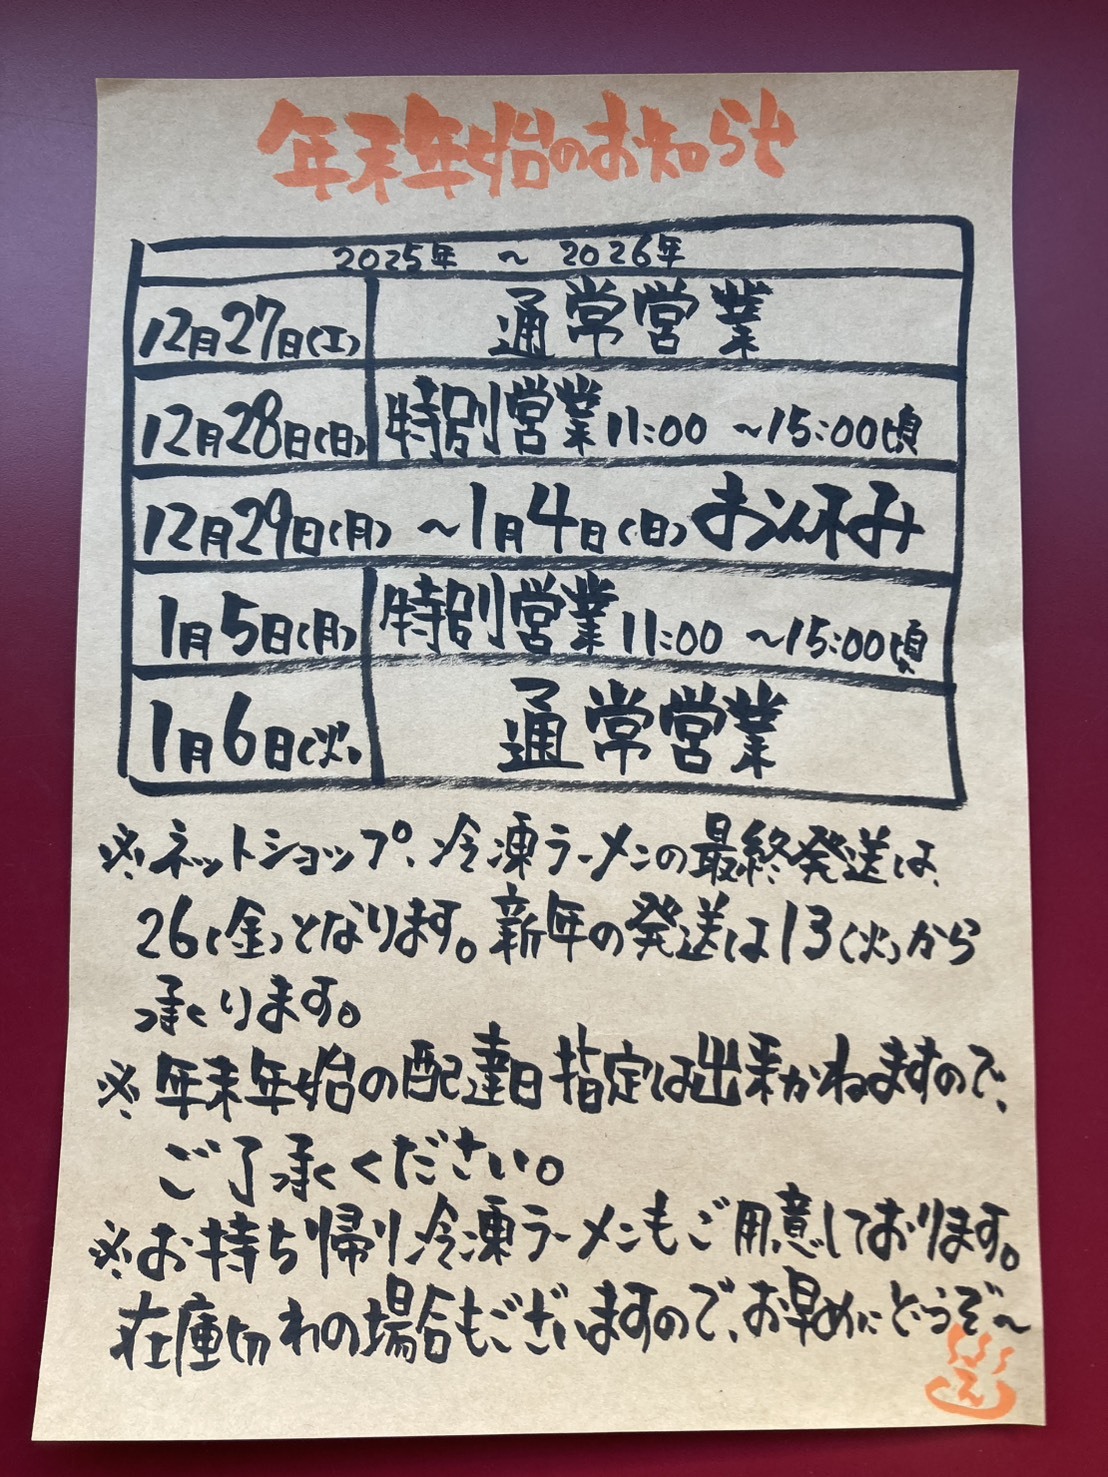 年末年始のお知らせ
2025年 ~ 2026年
12月27日(土) 通常営業
12月28日(日) 特別営業11:00 ~15:00頃
12月29日(月) ~1月4日(日)お休み
1月5日(月) 特別営業11:00 ~15:00頃
1月6日(火) 通常営業
※ネットショップ、冷凍ラーメンの最終発送は、
26(金)となります。新年の発送は13(火)から
承ります。
※年末年始の配達日指定は出来かねますので、
ご了承ください。
※お持ち帰り冷凍ラーメンもご用意しております。
在庫切れの場合もございますので、お早めにどうぞ~
え